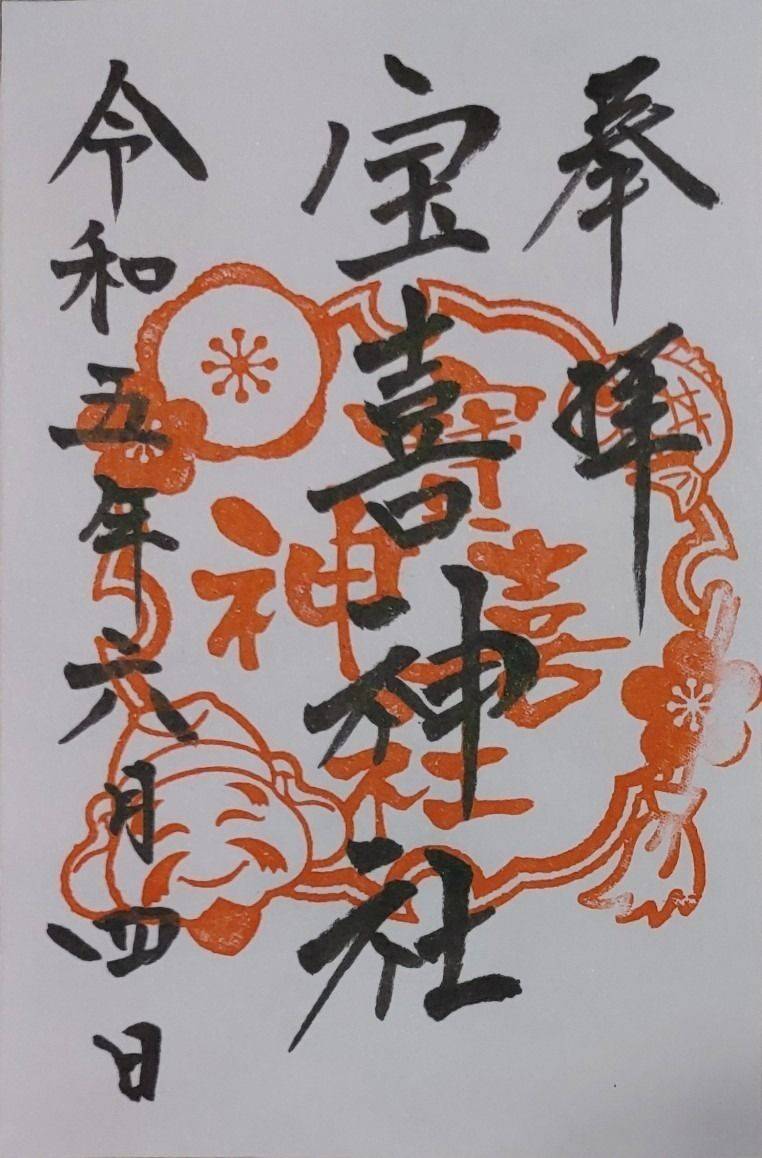 奉拝
宝喜神社
令和五年六月四日
宝喜
神社